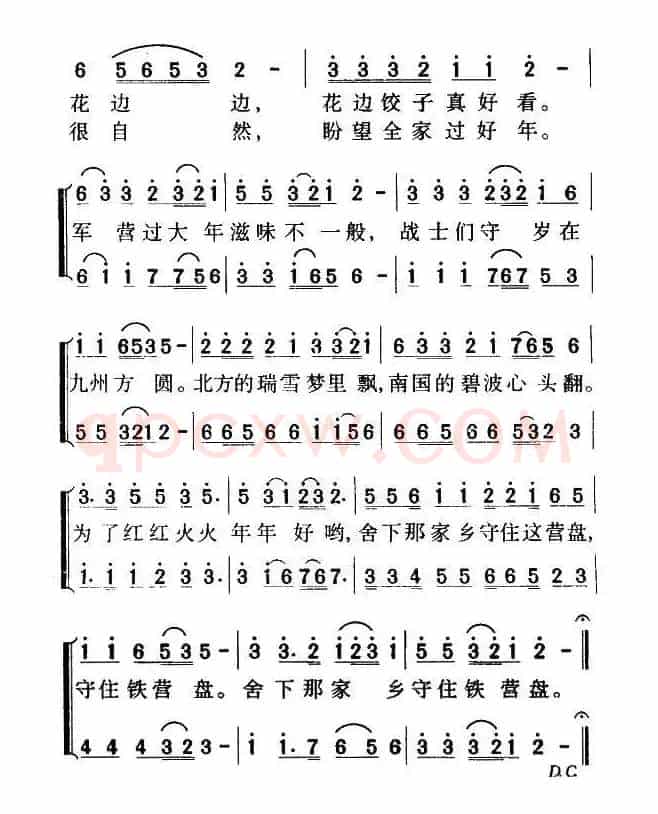 6 5653 2 - | 3332 1 1 2 - |
花边 边, 花边饺子真好看。
很自 然, 盼望全家过好年。
6 3 3 2 321 | 5 5 321 2 - | 3 3 3 232 1 6
军 营过大 年滋味不 一般, 战士们守 岁在
6 1 1 7 756 | 3 3 165 6 - | 1 1 1 767 5 3
1 1 6535 - | 2 2 2 2 1 3 321 | 6 3 3 2 1 765 6
九州方 圆。北方的瑞雪梦里 飘,南国的碧波心 头翻。
5 5 3212 - | 6 6 5 6 6 1156 | 6 6 5 6 6 532 3
qpcxw.COM
3. 3 5 5 3 5. | 5 31232. | 5 5 6 1 1 2 2 1 6 5 |
为了红红火火 年年 好哟,舍下那家乡守住这营盘,
1. 1 1 2 3 3. | 3 16767. | 3 3 4 5 5 6 6 5 2 3 |
1 1 6 535 - | 3 3. 2 1231 | 5 5 321 2 - ‖
守住铁营 盘。舍下那家 乡守住铁 营盘。
4 4 4 323 - | 1 1. 7 6 56 | 3 3 321 2 - ‖
D.C